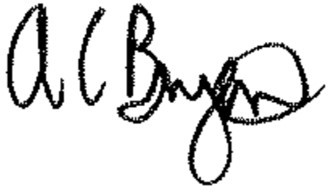 A C Bryan